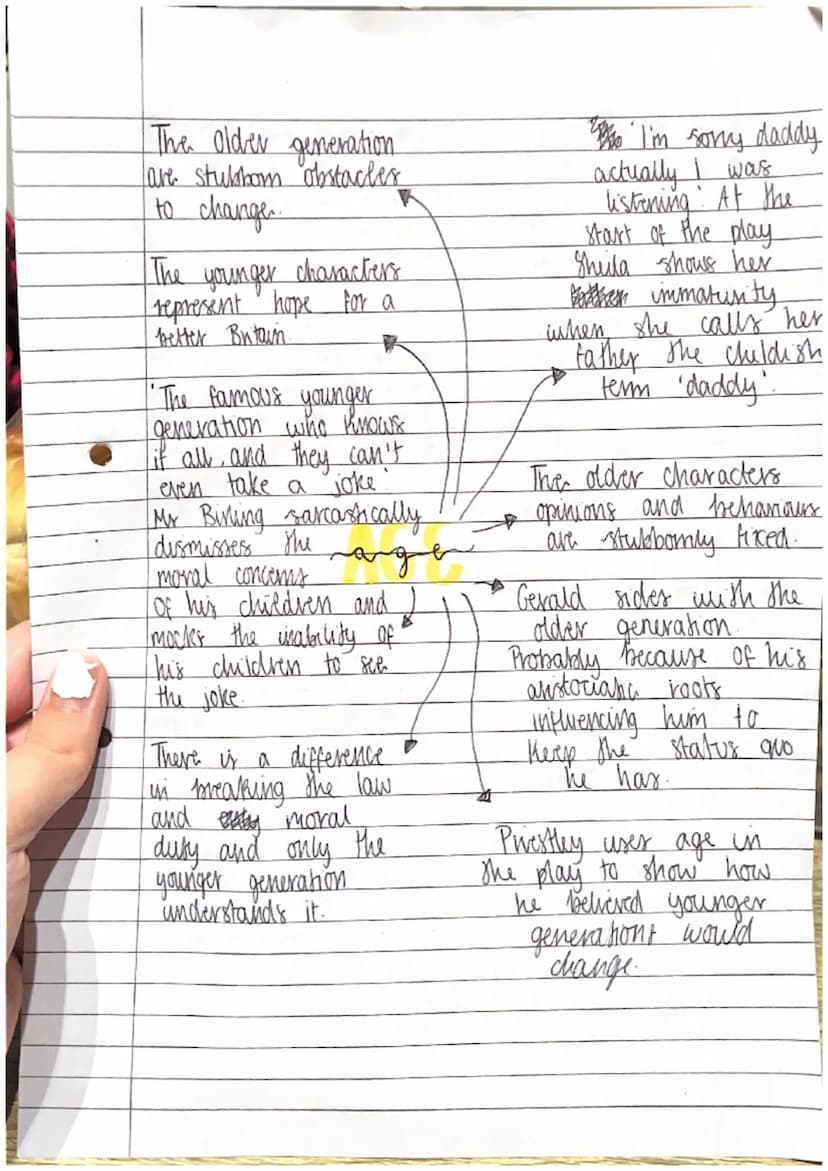 The older generation
are stubborn obstacles
to change.
The younger characters
represent hope for a
better Britain.
'The famous younger
generation who knows
it all, and they can't
even take a joke'
Mr Birling sarcastically
dismisses the
moral concerns
of his children and
mocks the inability of
his children to see
the joke.
There is a difference
in breaking the law
and moral
duty and only the
younger generation
understands it.
AGE
age
'I'm sorry daddy
actually I was
listening'. At the
start of the play
Sheila shows her
immaturity
when she calls her
father the childish
term 'daddy'.
The older characters
opinions and behaviours
are stubbornly fixed.
Gerald sides with the
older generation.
Probably because of his
aristocratic roots
influencing him to
keep the status quo
he has.
Priestley uses age in
the play to show how
he believed younger
generations would
change.